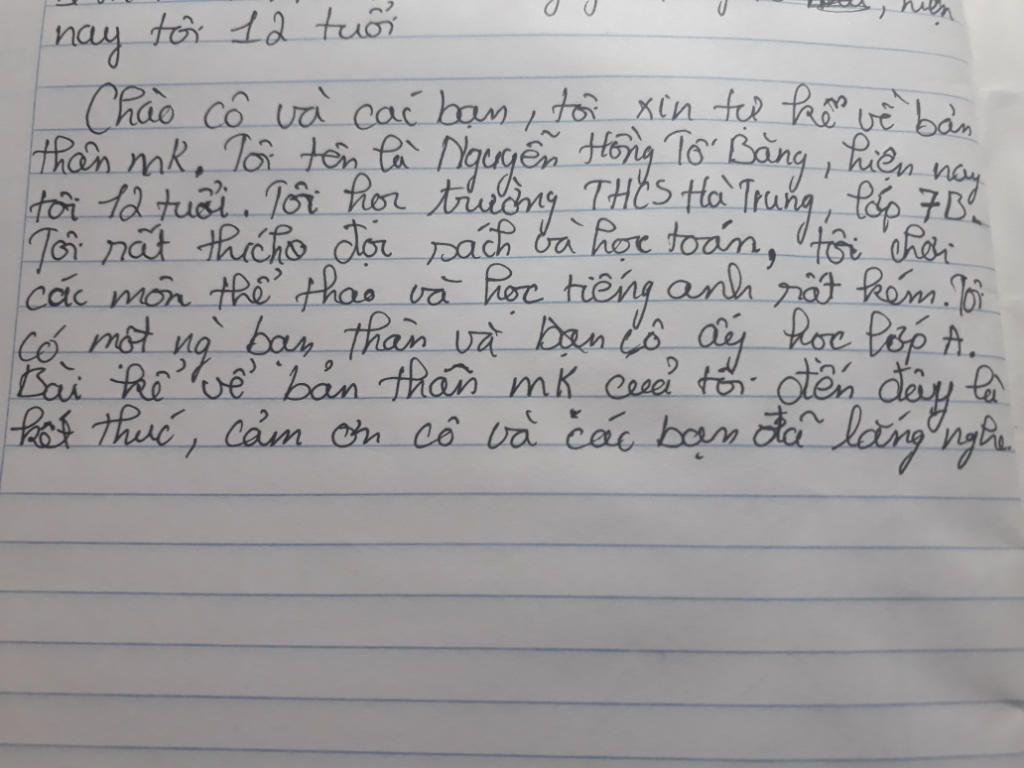 , hiện
nay tôi 12 tuổi
Chào cô và các bạn, tôi xin tự kể về bản
thân mk. Tôi tên là Nguyễn Hồng Tố Băng, hiện nay
tôi 12 tuổi. Tôi học trường THCS Hà Trung, lớp 7B.
Tôi rất thícho đọc sách và học toán, tôi chơi
các môn thể thao và học tiếng anh rất kém. Tôi
có một ng bạn thân và bạn cô ấy học lớp A.
Bài kể về bản thân mk cuả tôi đến đây là
kết thúc, cảm ơn cô và các bạn đã lắng nghe.